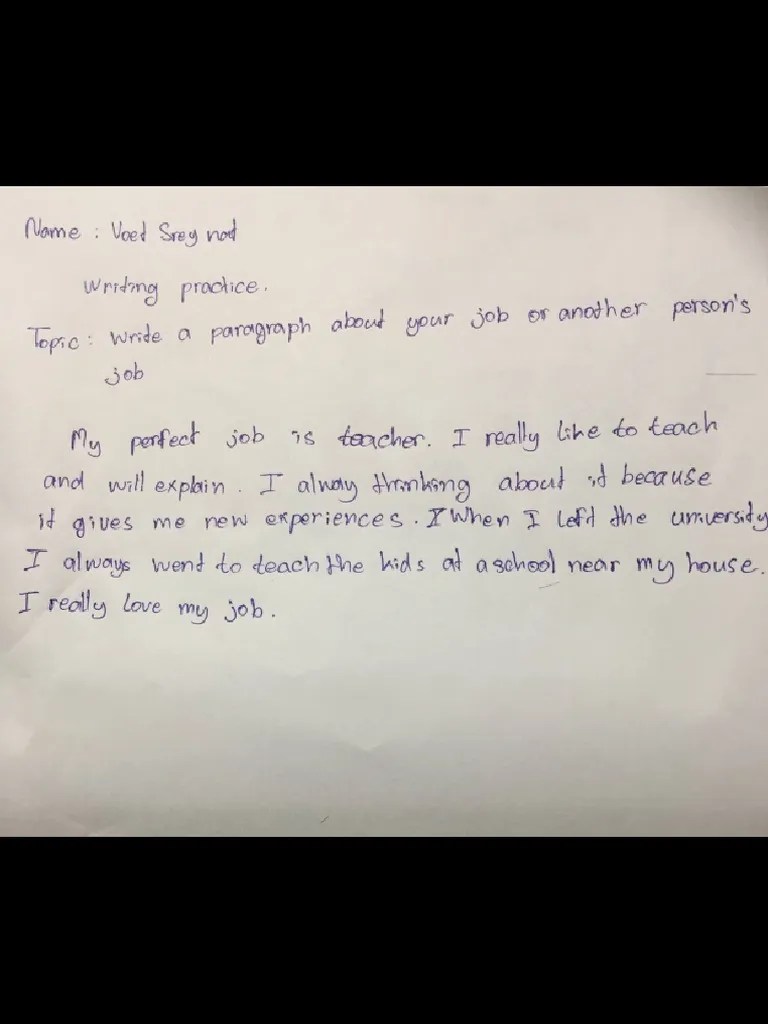 Name : Voet Srey nat
Writing practice.
Topic : Write a paragraph about your job or another person's
job
My perfect job is teacher. I really like to teach
and will explain. I alway thinking about it because
it gives me new experiences. I When I left the university
I always went to teach the kids at a school near my house.
I really love my job.